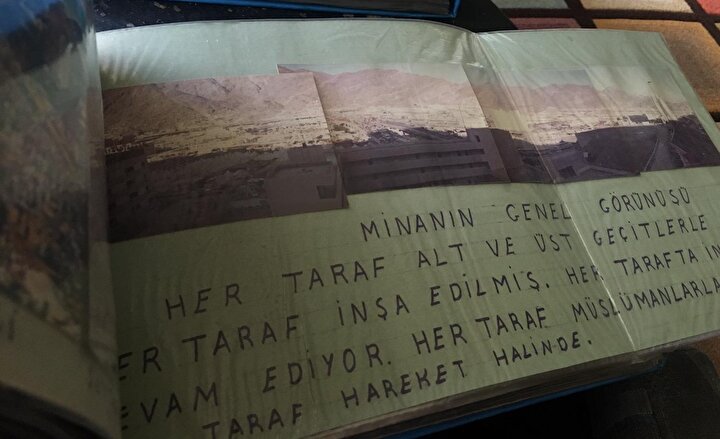 MİNANIN GENEL GÖRÜNÜSÜ
HER TARAF ALT VE ÜST GEÇİTLERLE
ER TARAF İNŞA EDİLMİŞ. HER TARAFTA İN
EVAM EDİYOR. HER TARAF MÜSLÜMANLARLA
TARAF HAREKET HALİNDE.